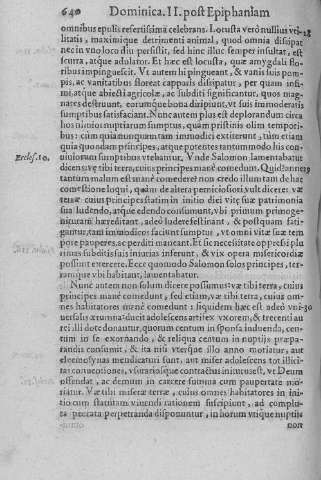 640 Dominica. II. post Epiphaniam
omnibus epulis refertissima celebrant. Locusta verò nullius vti-
litatis, maximique detrimenti animal, quod omnia dissipat
nec in vno loco diu persistit, sed hinc illuc semper insultat, est
scurra, atque adulator. Et hæc est locusta, quæ amygdali flo-
ribus impinguescit. Vt autem hi pingueant, & vanis suis pom-
pis, ac vanitatibus floreat capparis dissipatur, per quam infi-
mi, atque abiecti agricolæ, ac subditi significantur, quos mag-
nates destruunt, eorumque bona diripiunt, vt suis immoderatis
sumptibus satisfaciant. Nunc autem plus est deplorandum circa
hos nimios nuptiarum sumptus, quàm pristinis olim tempori-
bus: cùm quia nunquam tam immodici extiterunt, tùm etiam
quia quondam principes, atque potentes tantummodo his con-
Eccles. 10. uiuiorum sumptibus vtebantur. Vnde Salomon lamentabatur
dicens, væ tibi terra, cuius principes manè comedunt. Quid?
tantum malum est manè comedere? non credo illum tam de hac
comestione loqui, quàm de altera perniciosiori, vult dicere: væ
terræ cuius principes statim in initio diei vitæ suæ patrimonia
sua ludendo, atque edendo consumunt, vbi primum primoge-
nituram hæreditant, adeo iudefessi, & postquam fati-
gantur, tam immodicos faciunt sumptus, vt omni vitæ suæ tem
pore pauperes, ac perditi maneant. Et sic necessitate oppressi plu
rimas subditis suis iniurias inferunt, & vix opera misericordiæ
possunt exercere. Ecce quomodo Salomon solos principes, ter-
ramque vbi habitant, lamentabatur.
Nunc autem non solum dicere possumus: væ tibi terra, cuius
principes manè comedunt, sed etiam, væ tibi terra, cuius om-
nes habitatores manè comedunt: siquidem hæc est adeò vni-
uersalis ærumna: ducit adolescens artifex vxorem, & trecenti au
rei illi dote donantur, quorum centum in sponsa induenda, cen-
tum in se exornando, & reliqua centum in nuptijs præpa-
randis consumit, & ita nisi vterque illo anno moriatur, aut
eleemosynas mendicaturi sunt, aut miser adolescens tot illici-
tas conuentiones, vsurariosque contractus initurus est, vt Deum
offendat, ac demum in carcere summa cum paupertate mo-
riatur. Væ tibi miseræ terræ, cuius omnes habitatores in ini-
tio cum statutam viuendi rationem suscipiunt, ad complu-
ra peccata perpetranda disponuntur, in horum vtique nuptijs
non